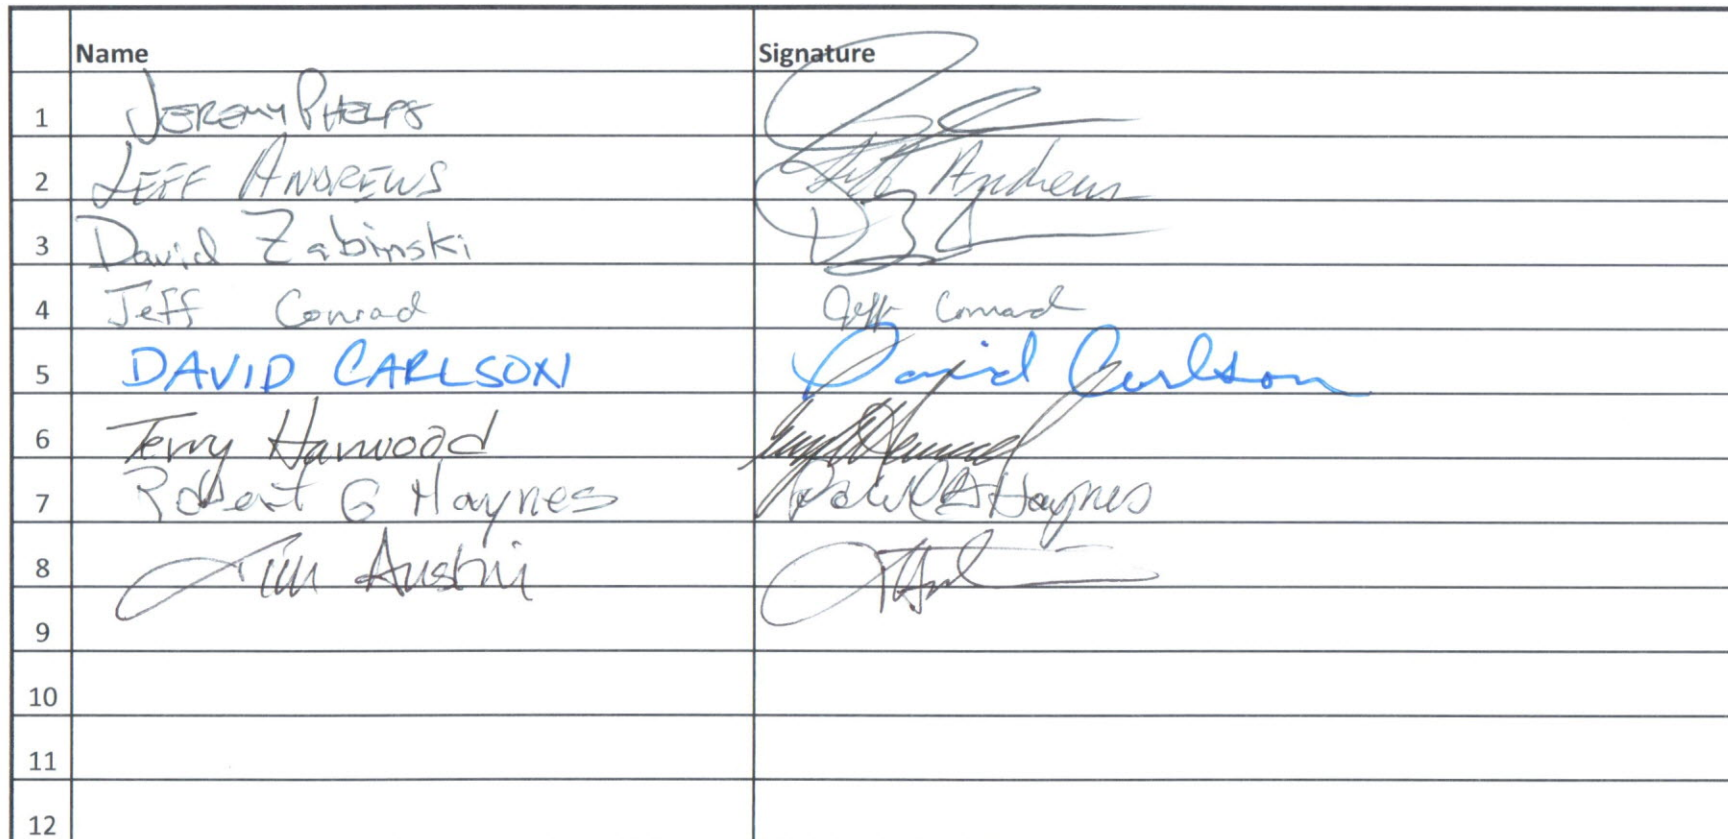 Name Signature
1 JEREMY PHELPS
2 JEFF ANDREWS Jeff Andrews
3 David Zabinski
4 Jeff Conrad Jeff Conrad
5 DAVID CARLSON David Carlson
6 Terry Harwood
7 Robert G Haynes Robert G Haynes
8 Tim Austin
9
10
11
12